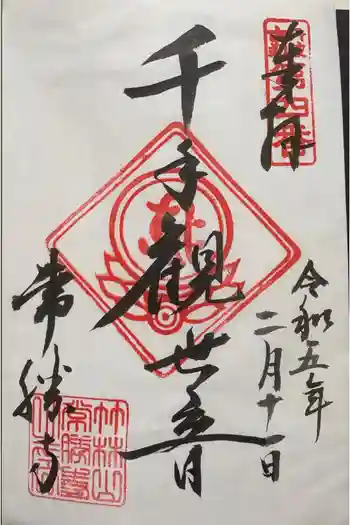 奉拝
令和五年
二月十一日
千手観世音
常勝寺
竹林山
常勝寺